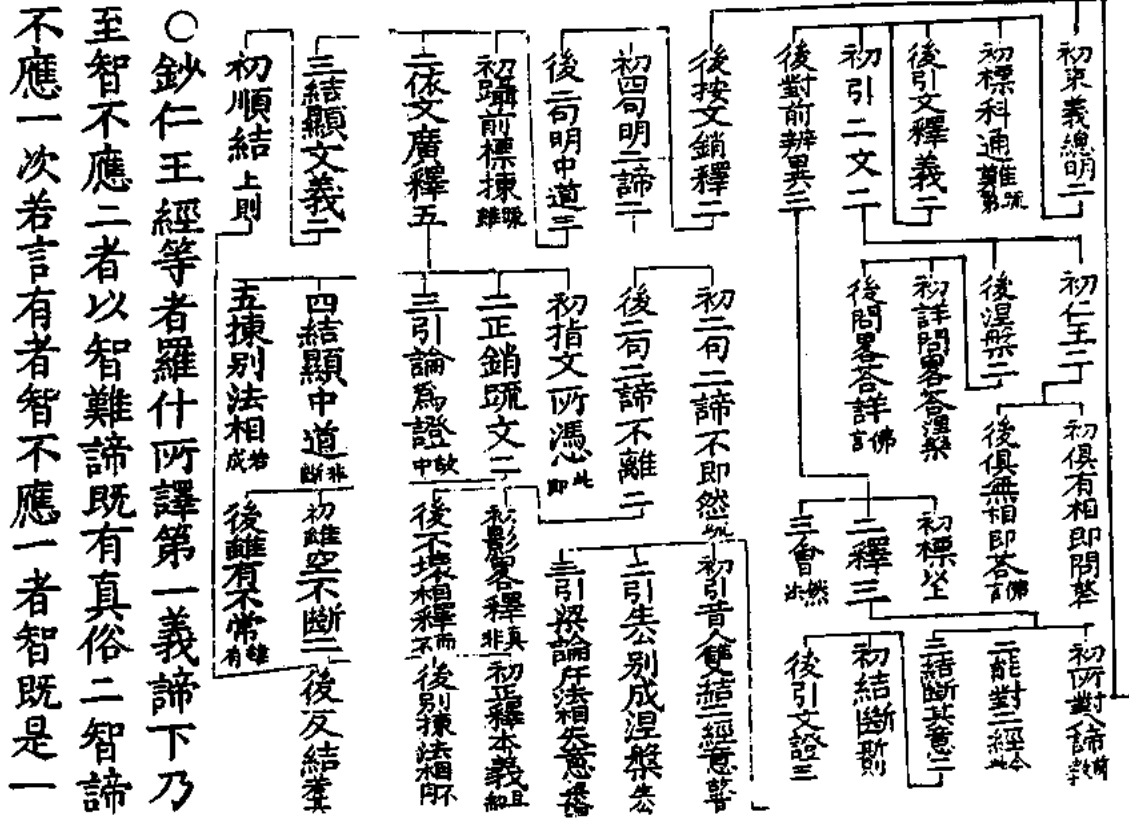 初束義總明二
初標科通難疏
後引文釋義二
初引二文二
後對前辨異三
後按文銷釋二
初四句明二諦二
後二句明中道三
初躡前標揀疏雖
二依文廣釋五
三結顯文義二
初順結上則
初仁王二
後涅槃二
初詳問畧荅涅槃
後問畧荅詳佛言
初二句二諦不即然
後二句二諦不離二
初指文所憑此即
二正銷疏文二
三引論為證故中
四結顯中道非斷
五揀別法相若成
初俱有相即問
後俱無相即荅佛言
初標以上
二釋三
三會然法
初引昔人雙結二經意
二引生公別成涅槃
三引梁論斥法相失意
初影畧釋真非
後不壞相釋而不
初雖空不斷二
後雖有不常雖有
初所對人諦
二能對二經
三結斷其意二
初結斷則
後引文證三
初正釋本義
後別揀法相
後反結
○鈔仁王經等者羅什所譯第一義諦下乃
至智不應二者以智難諦既有真俗二智諦
不應一次若言有者智不應一者智既是一